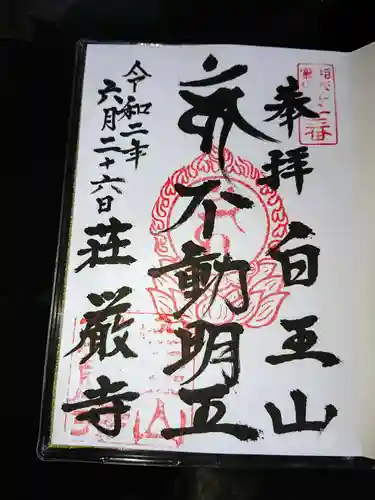 奉拝 白王山
不動明王
荘厳寺
令和二年
六月二十六日